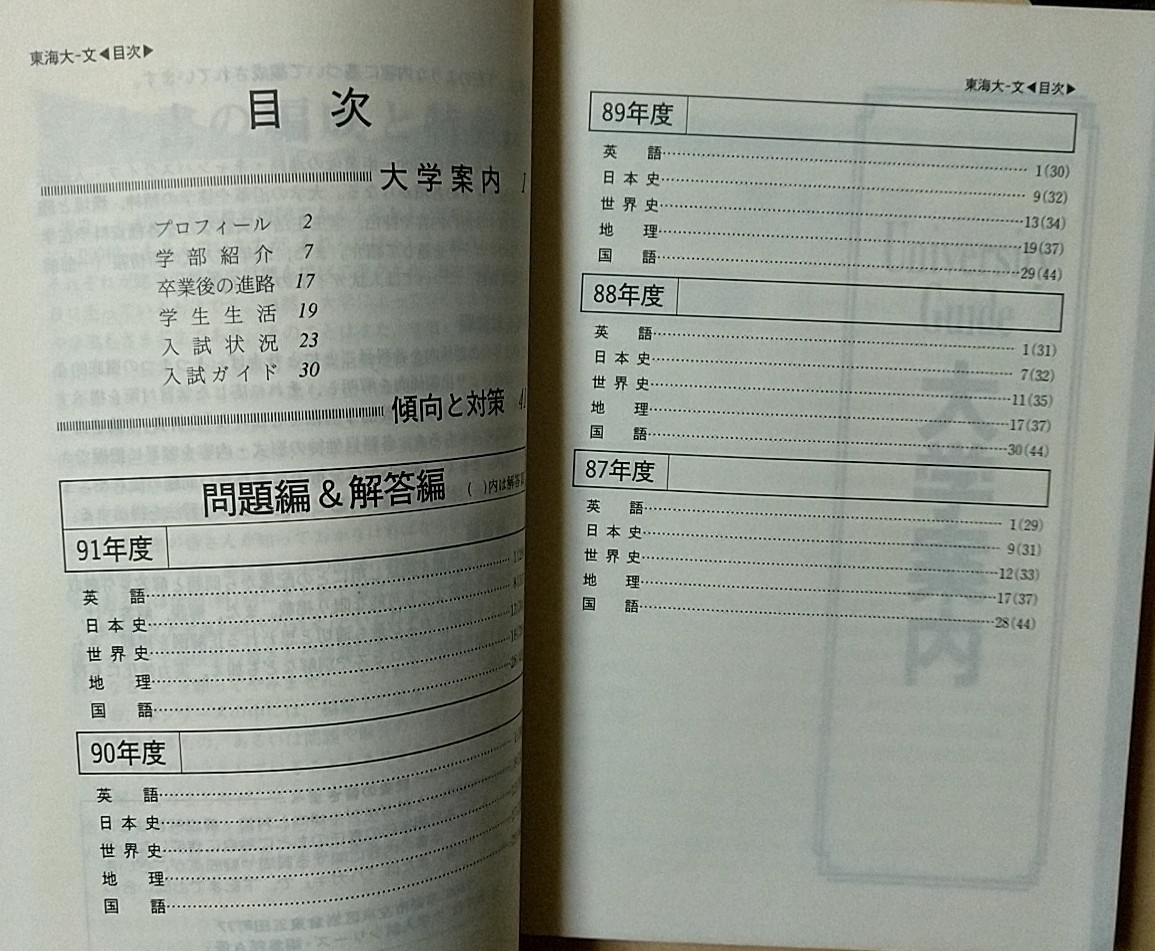 東海大-文◀目次▶
目 次
大学案内 1
プロフィール 2
学部紹介 7
卒業後の進路 17
学生生活 19
入試状況 23
入試ガイド 30
傾向と対策
問題編&解答編 ( )内は解答
91年度
英 語
日本史
世界史
地 理
国 語
90年度
英 語
日本史
世界史
地 理
国 語
東海大-文◀目次▶
89年度
英 語 1(30)
日本史 9(32)
世界史 13(34)
地 理 19(37)
国 語 29(44)
88年度
英 語 1(31)
日本史 7(32)
世界史 11(35)
地 理 17(37)
国 語 30(44)
87年度
英 語 1(29)
日本史 9(31)
世界史 12(33)
地 理 17(37)
国 語 28(44)
University
Guide
大学案内